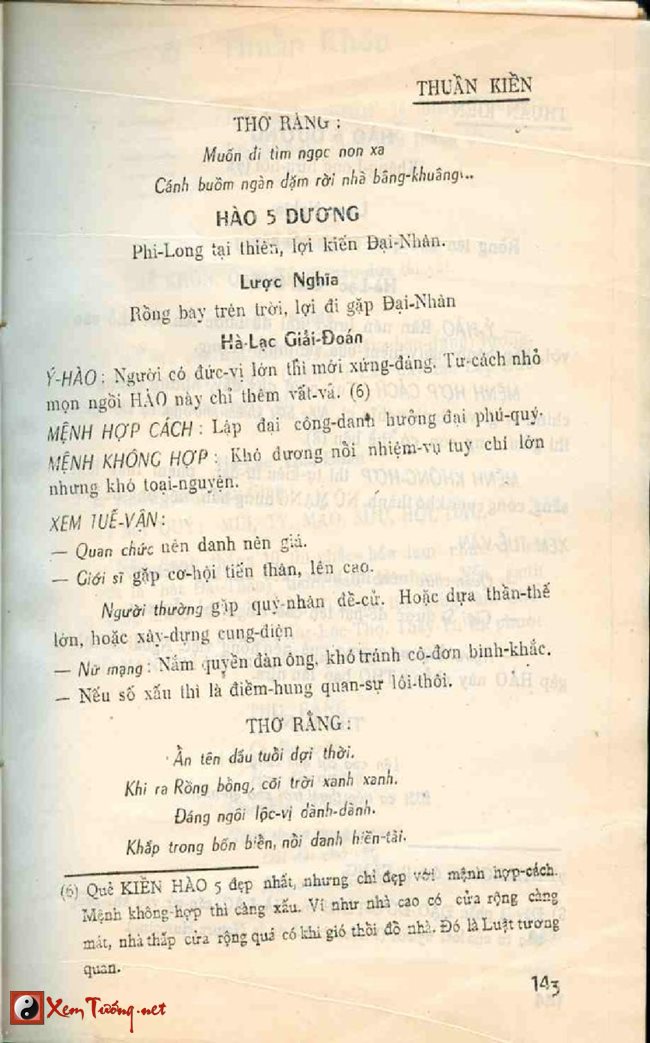 THUẦN KIỀN
THƠ RẰNG :
Muốn đi tìm ngọc non xa
Cánh buồm ngàn dặm rời nhà bâng-khuâng...
HÀO 5 DƯƠNG
Phi-Long tại thiên, lợi kiến Đại-Nhân.
Lược Nghĩa
Rồng bay trên trời, lợi đi gặp Đại-Nhân
Hà-Lạc Giải-Đoán
Ý-HÀO : Người có đức-vị lớn thì mới xứng-đáng. Tư-cách nhỏ
mọn ngồi HÀO này chỉ thêm vất-vả. (6)
MỆNH HỢP CÁCH : Lập đại công-danh hưởng đại phú-quý.
MỆNH KHÔNG HỢP : Khó đương nổi nhiệm-vụ tuy chí lớn
nhưng khó toại-nguyện.
XEM TUẾ-VẬN :
— Quan chức nên danh nên giá.
— Giới sĩ gặp cơ-hội tiến thân, lên cao.
Người thường gặp quý-nhân đề-cử. Hoặc dựa thần-thế
lớn, hoặc xây-dựng cung-điện
— Nữ mạng : Nắm quyền đàn ông, khó tránh cô-đơn hình-khắc.
— Nếu số xấu thì là điềm-hung quan-sự lôi-thôi.
THƠ RẰNG :
Ẩn tên dấu tuổi đợi thời.
Khi ra Rồng bổng, cõi trời xanh xanh.
Đáng ngôi lộc-vị dành-dành.
Khắp trong bốn biển, nổi danh hiền-tài.
(6) Quẻ KIỀN HÀO 5 đẹp nhất, nhưng chỉ đẹp với mệnh hợp-cách.
Mệnh không-hợp thì càng xấu. Ví như nhà cao có cửa rộng càng
mát, nhà thấp cửa rộng quá có khi gió thổi đổ nhà. Đó là Luật tương
quan.
143
XemTướng.net